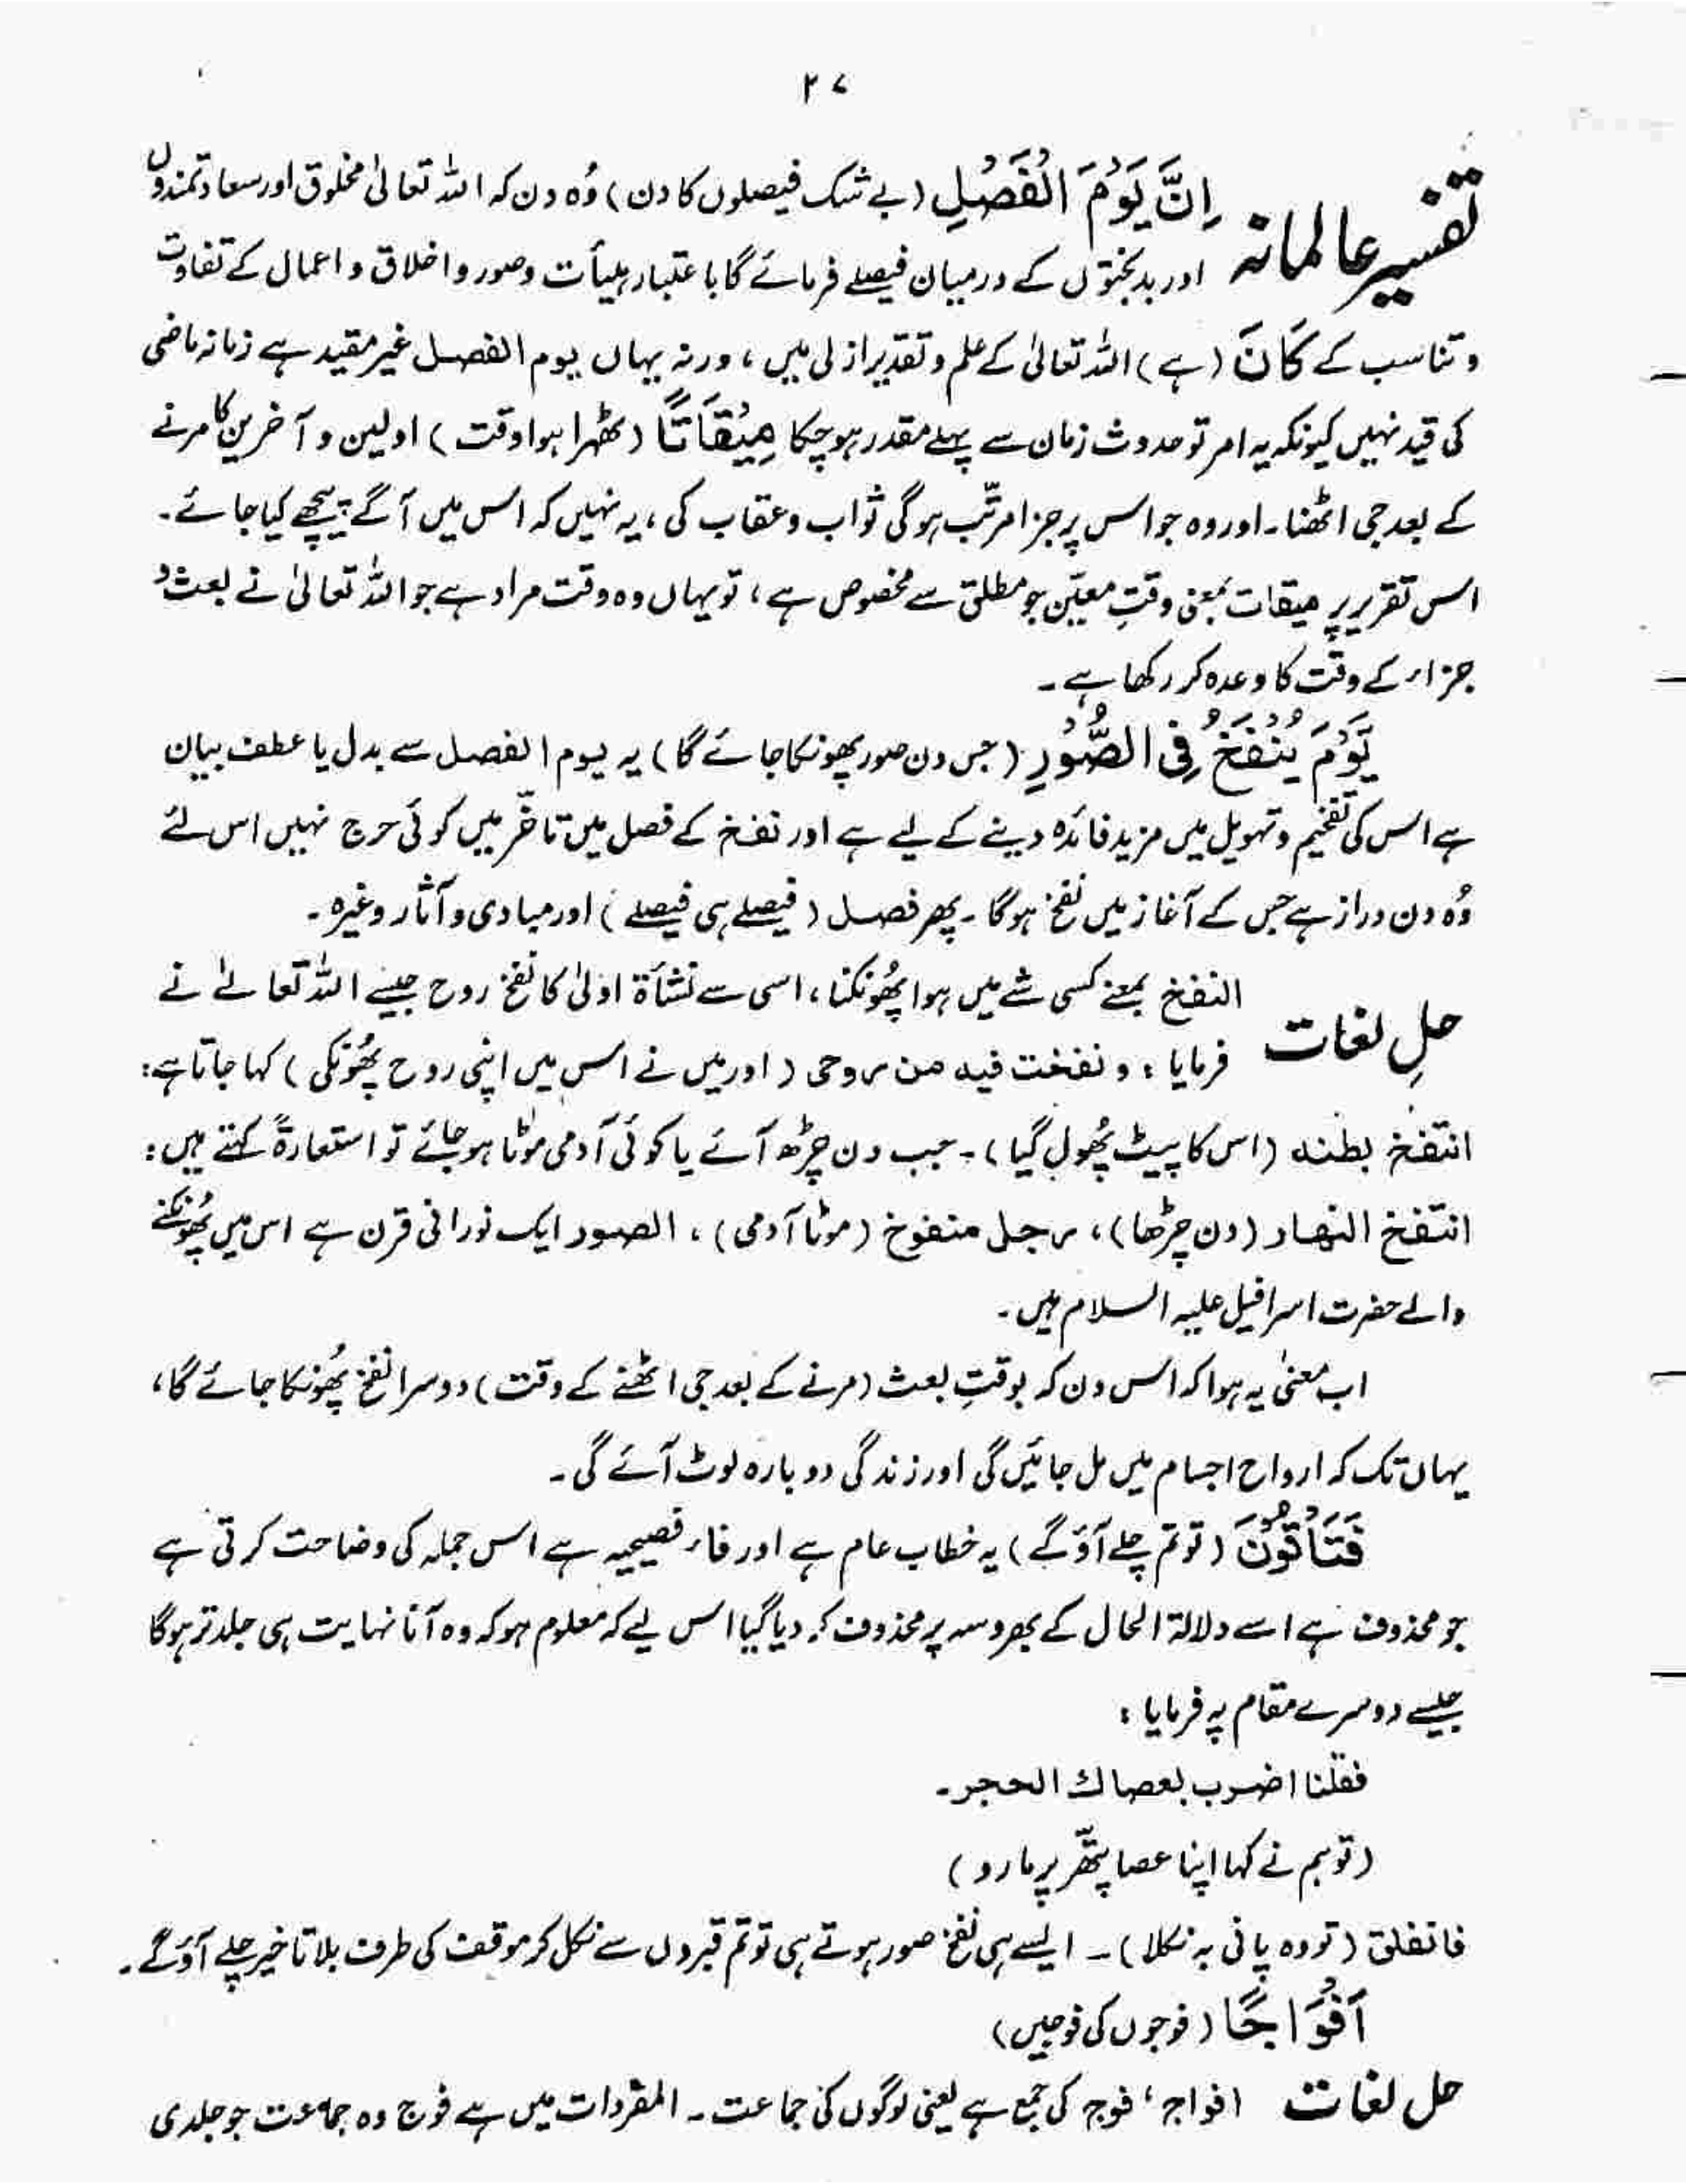 ۲۷
تفسیر عالمانہ اِنَّ یَوْمَ الْفَصْلِ (بے شک فیصلوں کا دن) وُہ دن کہ اللہ تعالیٰ مخلوق اور سعادتمندوں
اور بدبختوں کے درمیان فیصلے فرمائے گا باعتبار ہیأت وصور و اخلاق و اعمال کے تفاوت
و تناسب کے کَانَ (ہے) اللہ تعالیٰ کے علم و تقدیر ازلی میں ، ورنہ یہاں یوم الفصل غیر مقید ہے زمانہ ماضی
کی قید نہیں کیونکہ یہ امر تو حدوث زمان سے پہلے مقدر ہو چکا مِیْقَاتًا (ٹھہرا ہوا وقت) اولین و آخرین کا مرنے
کے بعد جی اٹھنا۔ اور وہ جو اس پر جزا مرتّب ہوگی ثواب و عقاب کی ، یہ نہیں کہ اس میں آگے پیچھے کیا جائے۔
اس تقریر پر میقات بمعنی وقتِ معیّن جو مطلق سے مخصوص ہے ، تو یہاں وہ وقت مراد ہے جو اللہ تعالیٰ نے بعث و
جزاء کے وقت کا وعدہ کر رکھا ہے ۔
یَوْمَ یُنْفَخُ فِی الصُّوْرِ (جس دن صور پھونکا جائے گا) یہ یوم الفصل سے بدل یا عطف بیان
ہے اس کی تفخیم و تہویل میں مزید فائدہ دینے کے لیے ہے اور نفخ کے فصل میں تاخّر میں کوئی حرج نہیں اس لئے
وُہ دن دراز ہے جس کے آغاز میں نفخ ہوگا ۔ پھر فصل (فیصلے ہی فیصلے) اور مبادی و آثار وغیرہ ۔
حلِ لغات النفخ بمعنے کسی شے میں ہوا پھُونکنا ، اسی سے نشأۃ اولیٰ کا نفخ روح جیسے اللہ تعالےٰ نے
فرمایا : و نفخت فیہ من روحی (اور میں نے اس میں اپنی روح پھُونکی) کہا جاتا ہے :
انتفخ بطنہ (اس کا پیٹ پھُول گیا) ۔ جب دن چڑھ آئے یا کوئی آدمی موٹا ہو جائے تو استعارۃً کہتے ہیں :
انتفخ النھار (دن چڑھا) ، رجل منفوخ (موٹا آدمی) ، الصور ایک نورانی قرن ہے اس میں پھُونکنے
والے حضرت اسرافیل علیہ السلام ہیں ۔
اب معنیٰ یہ ہوا کہ اس دن کہ بوقتِ بعث (مرنے کے بعد جی اٹھنے کے وقت) دوسرا نفخ پھُونکا جائے گا،
یہاں تک کہ ارواح اجسام میں مل جائیں گی اور زندگی دوبارہ لوٹ آئے گی ۔
فَتَاْتُوْنَ (تو تم چلے آؤ گے) یہ خطاب عام ہے اور فاء فصیحیہ ہے اس جملہ کی وضاحت کرتی ہے
جو محذوف ہے اسے دلالۃ الحال کے بھروسہ پر محذوف کر دیا گیا اس لیے کہ معلوم ہو کہ وہ آنا نہایت ہی جلد تر ہوگا
جیسے دوسرے مقام پہ فرمایا :
فقلنا اضرب بعصاك الحجر۔
(تو ہم نے کہا اپنا عصا پتھّر پر مارو)
فانفلق (تو وہ پانی بہ نکلا) ۔ ایسے ہی نفخ صور ہوتے ہی تو تم قبروں سے نکل کر موقف کی طرف بلا تاخیر چلے آؤ گے ۔
اَفْوَاجًا (فوجوں کی فوجیں)
حل لغات افواج ، فوج کی جمع ہے یعنی لوگوں کی جماعت ۔ المفردات میں ہے فوج وہ جماعت جو جلدی